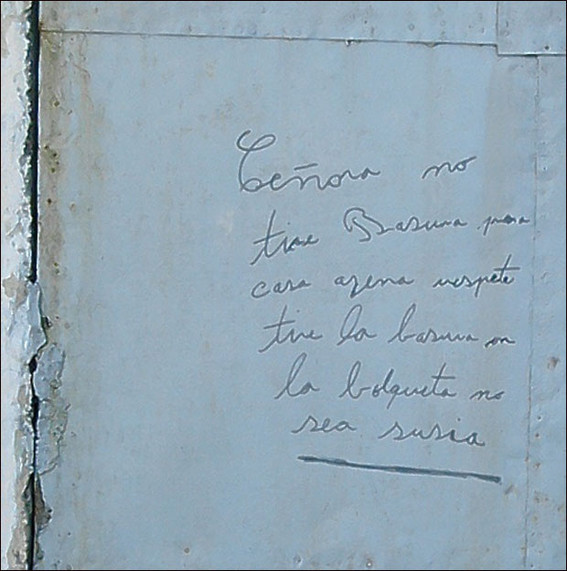 Ceñora no
tire Basura para
casa agena respete
tire la basura en
la bolqueta no
sea susia